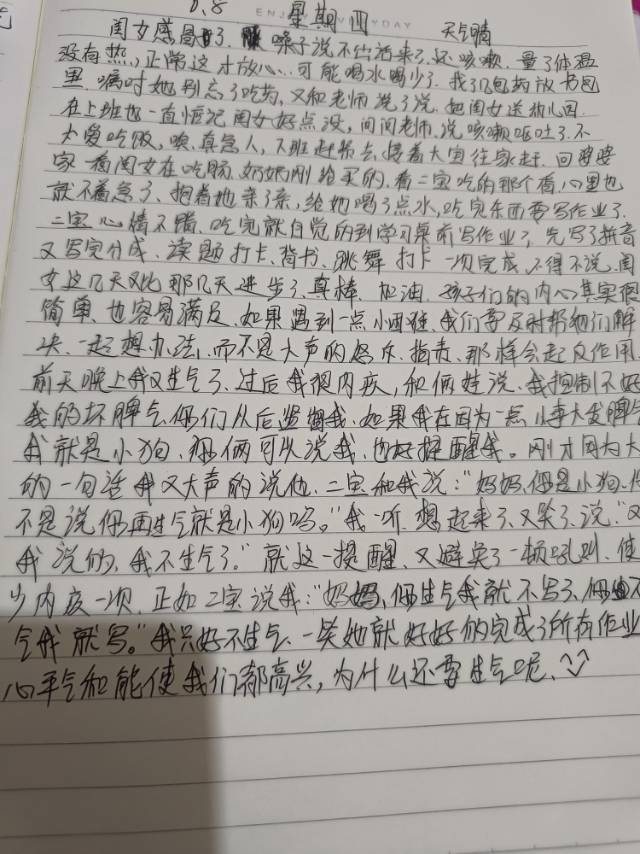 0.8 星期四 天气晴
ENJOY EVERYDAY
闺女感冒了、嗓子说不出话来了、还咳嗽、量了体温
没有热,正常这才放心、可能喝水喝少了、我拿几包药放书包
里、嘱咐她别忘了吃药,又和老师说了说、把闺女送幼儿园、
在上班也一直惦记闺女好点没,问问老师、说咳嗽呕吐了、不
大爱吃饭,唉、真急人,下班赶紧去接着大宝往家赶、回婆婆
家一看闺女在吃肠、奶奶刚给买的、看二宝吃的那个香、心里也
就不着急了、抱着她亲了亲、给她喝了点水,吃完东西要写作业了、
二宝心情不错、吃完就自觉的到学习桌前写作业了,先写了拼音
又写完分成、读题打卡、背书、跳舞打卡一次完成、不得不说、闺
女这几天又比那几天进步了、真棒、加油、孩子们的内心其实很
简单、也容易满足、如果遇到一点小困难、我们要及时帮他们解
决、一起想办法,而不是大声的怒斥、指责、那样会起反作用、
前天晚上我又生气了、过后我很内疚,和俩娃说、我控制不好
我的坏脾气、你们从后监督我、如果我在因为一点小事大发脾气
我就是小狗、你俩可以说我、也好提醒我。刚才因为大
的一句话我又大声的说他、二宝和我说:"妈妈、你是小狗、你
不是说你再生气就是小狗吗。"我一听、想起来了、又笑了、说"又
我说的、我不生气了。"就这一提醒、又避免了一顿吼叫、使
少内疚一次、正如二宝说我:"妈妈,你生气我就不写了、你不
气我就写。"我只好不生气、一笑她就好好的完成了所有作业
心平气和能使我们都高兴,为什么还要生气呢、